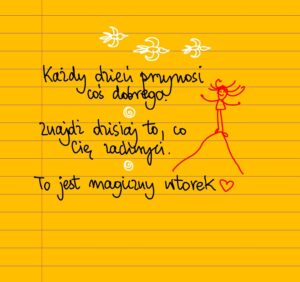 Każdy dzień przynosi
coś dobrego.
Znajdź dzisiaj to, co
Cię zadziwi.
To jest magiczny wtorek